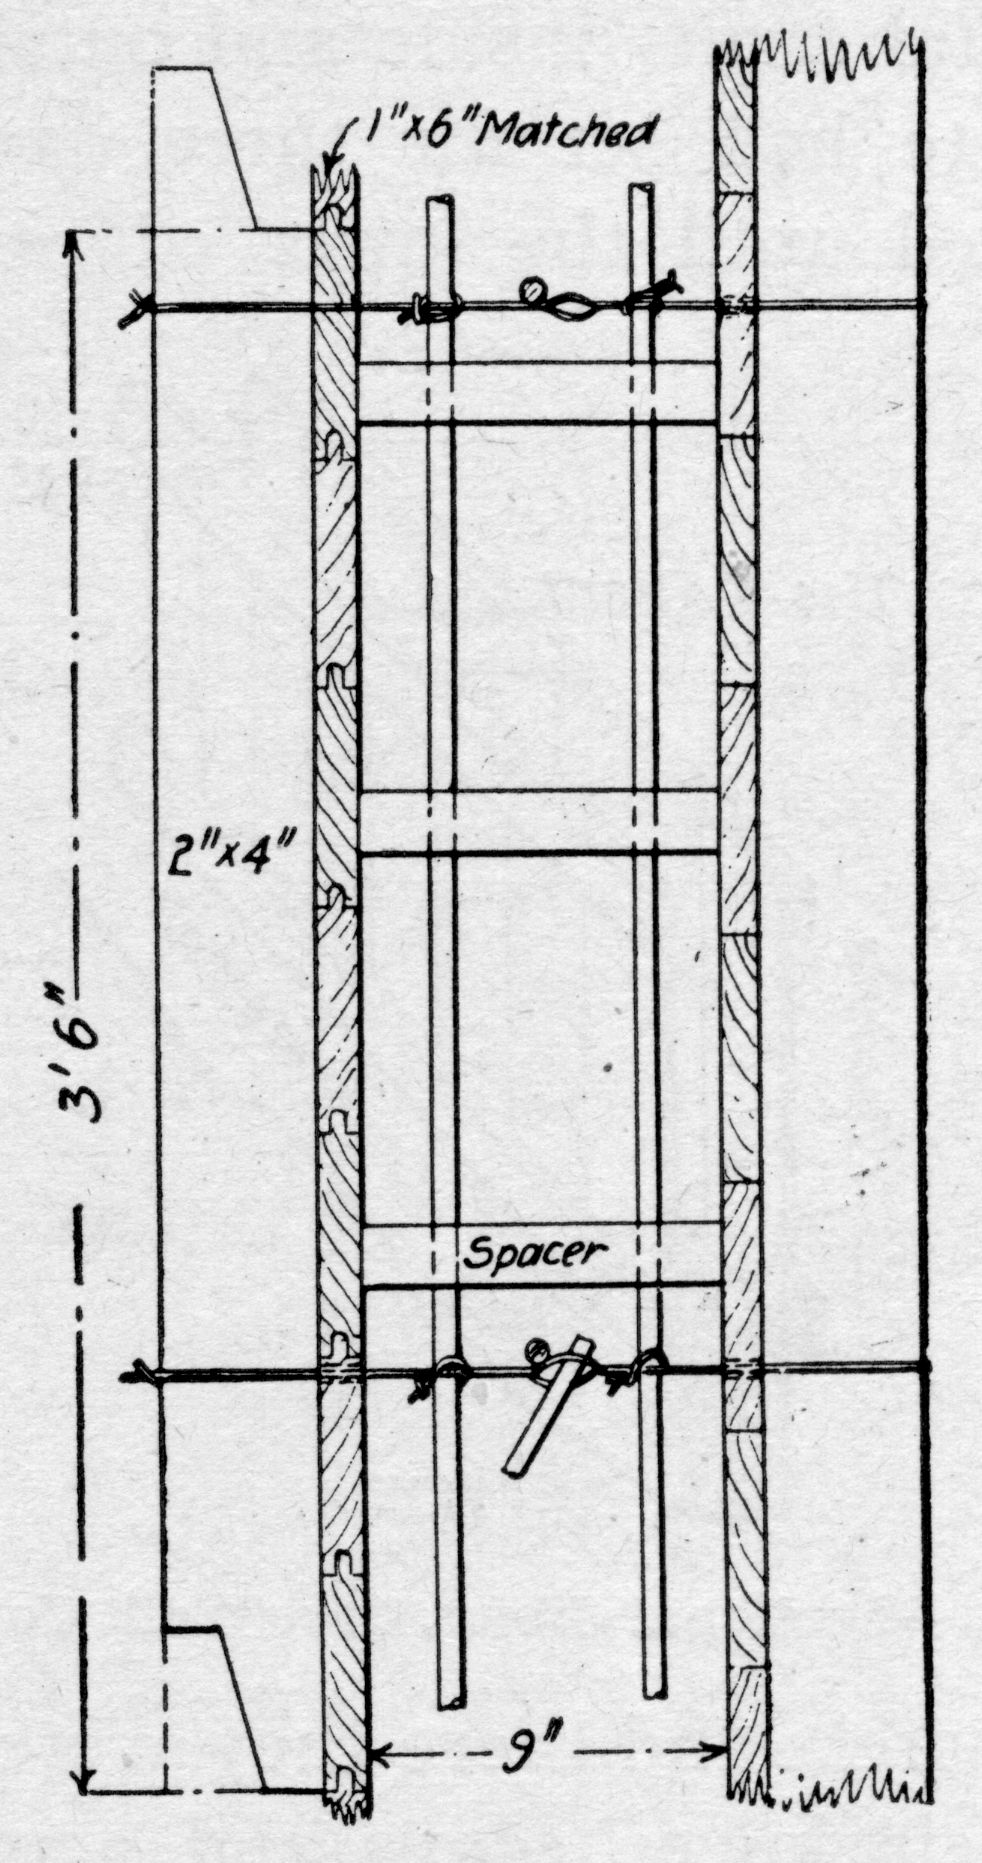 1"x6" Matched
2"x4"
3'6"
Spacer
9"